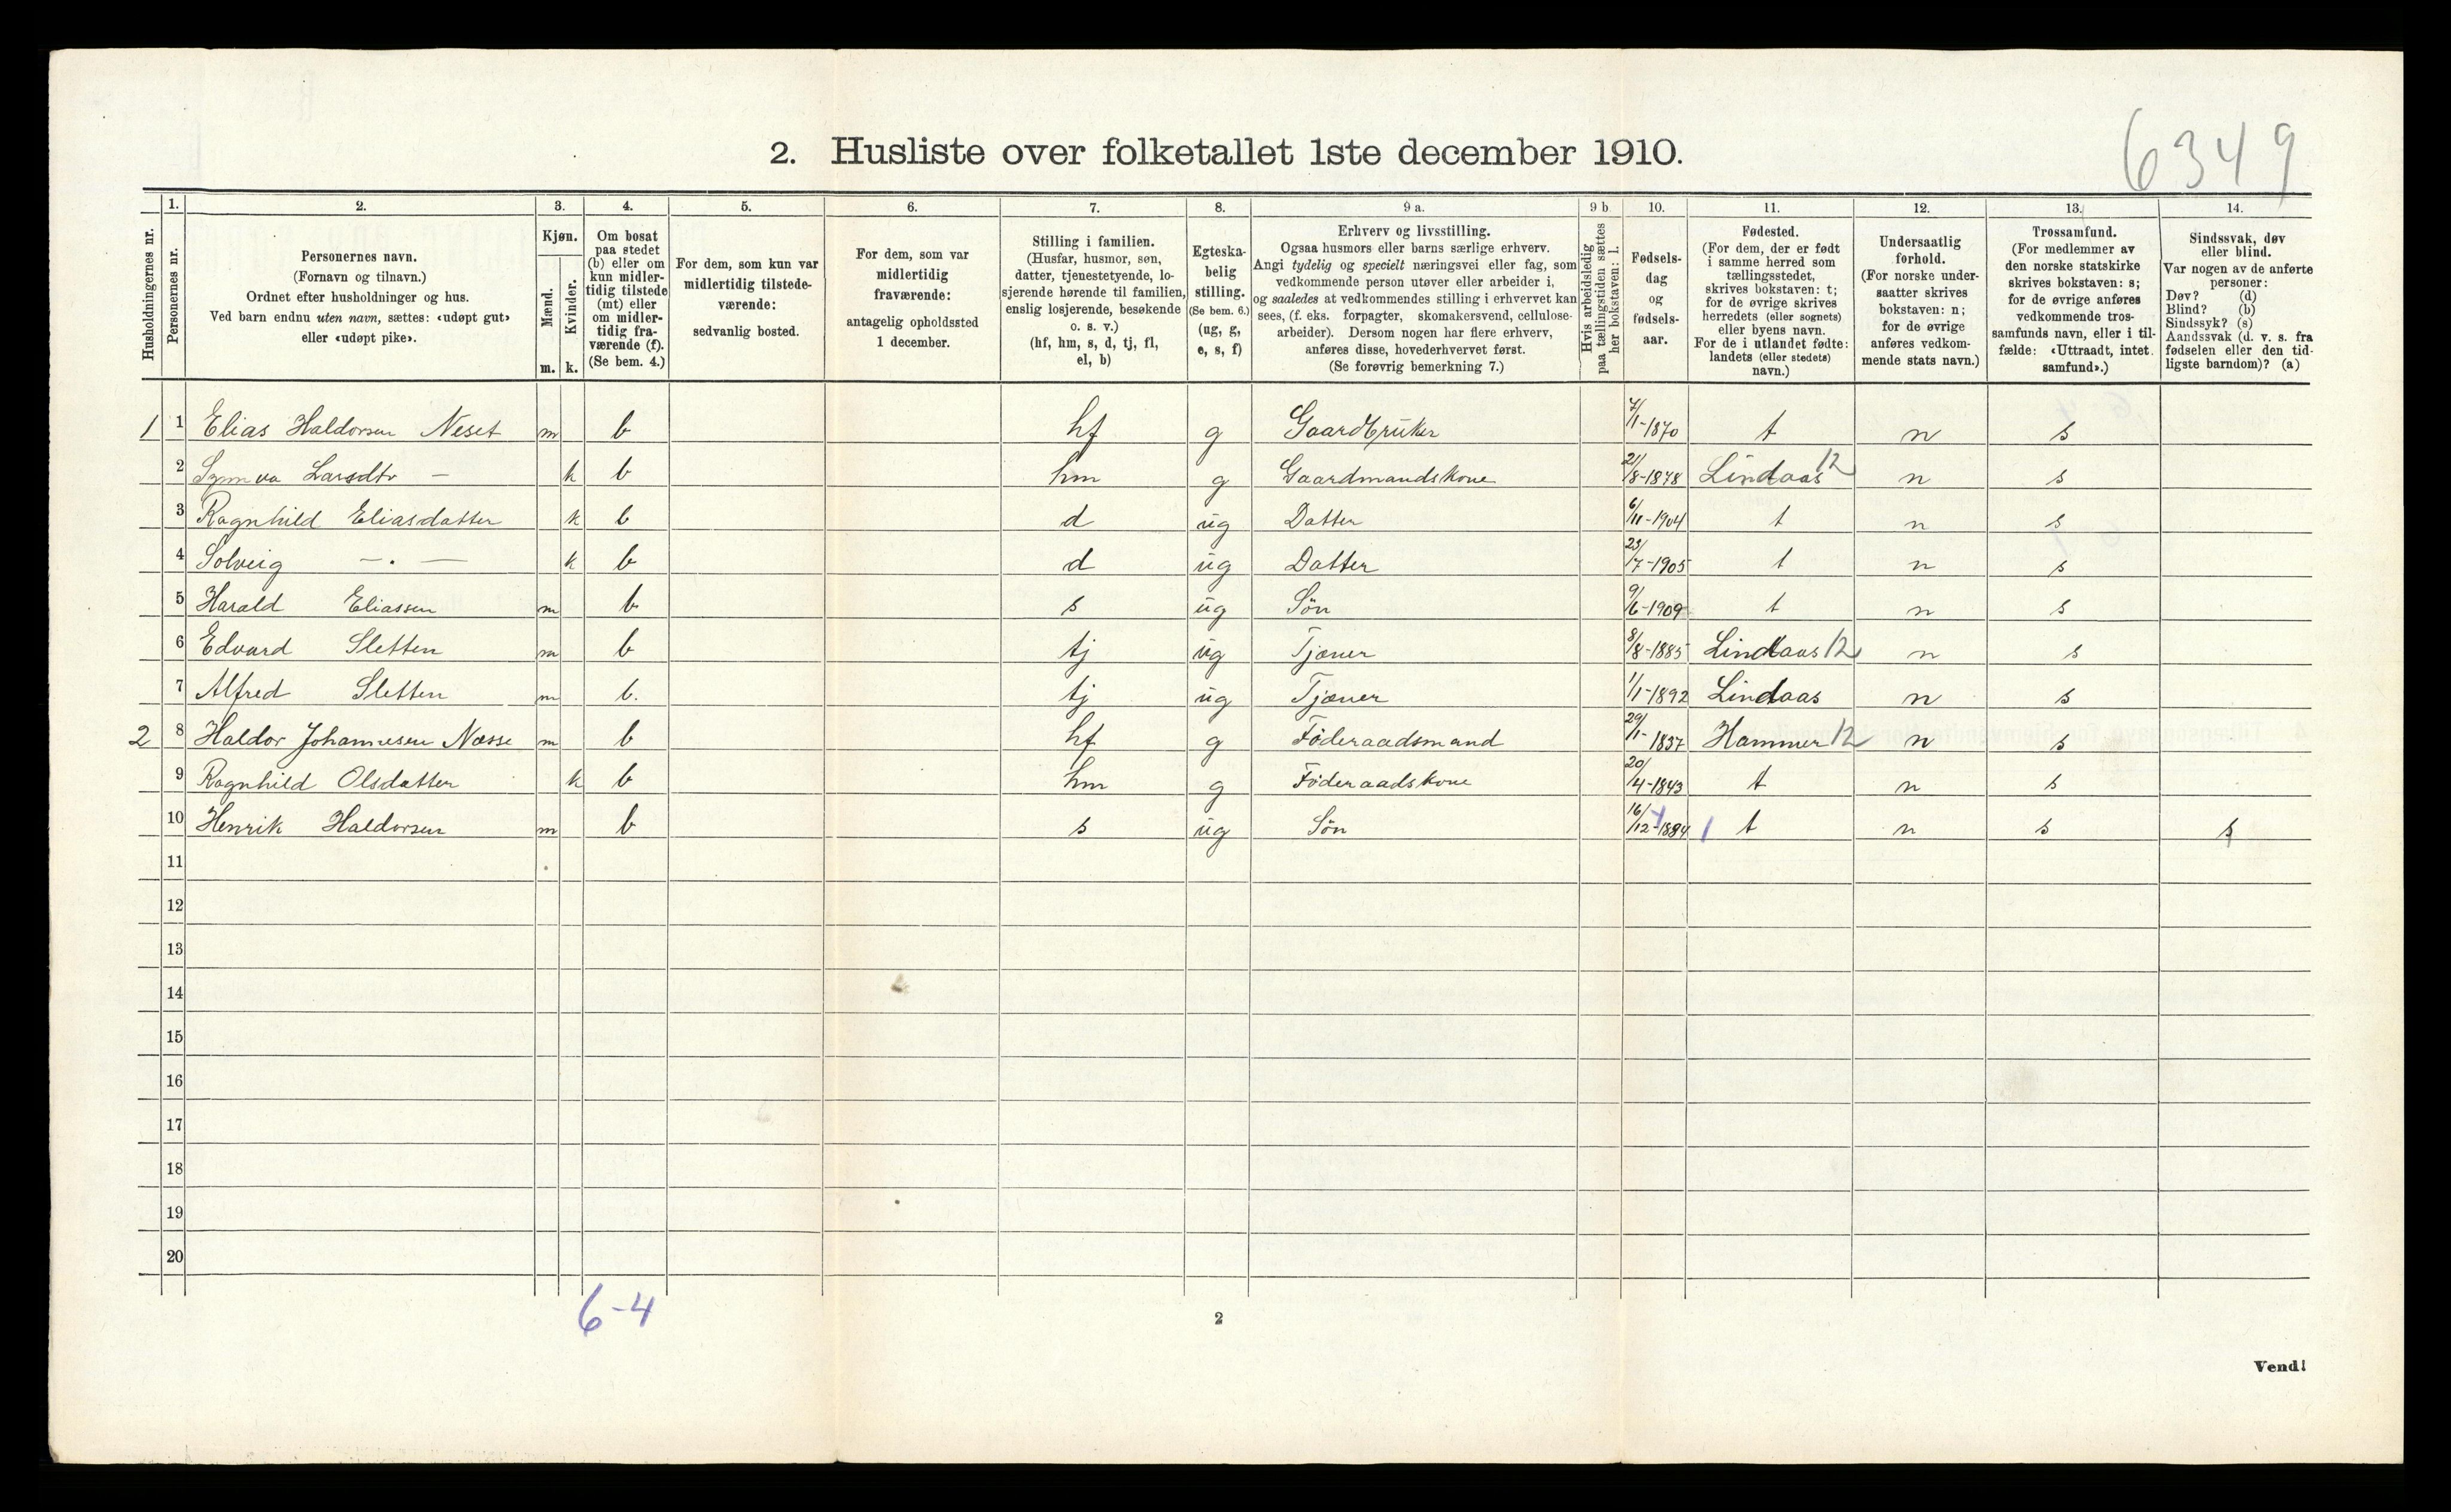 6349
2. Husliste over folketallet 1ste december 1910.
Husholdningernes nr.
1. Personernes nr.
2. Personernes navn.
(Fornavn og tilnavn.)
Ordnet efter husholdninger og hus.
Ved barn endnu uten navn, sættes: «udøpt gut»
eller «udøpt pike».
3. Kjøn.
Mænd. m.
Kvinder. k.
4. Om bosat
paa stedet
(b) eller om
kun midler-
tidig tilstede
(mt) eller
om midler-
tidig fra-
værende (f).
(Se bem. 4.)
5. For dem, som kun var
midlertidig tilstede-
værende:
sedvanlig bosted.
6. For dem, som var
midlertidig
fraværende:
antagelig opholdssted
1 december.
7. Stilling i familien.
(Husfar, husmor, søn,
datter, tjenestetyende, lo-
sjerende hørende til familien,
enslig losjerende, besøkende
o. s. v.)
(hf, hm, s, d, tj, fl,
el, b)
8. Egteska-
belig
stilling.
(Se bem. 6.)
(ug, g,
e, s, f)
9 a. Erhverv og livsstilling.
Ogsaa husmors eller barns særlige erhverv.
Angi tydelig og specielt næringsvei eller fag, som
vedkommende person utøver eller arbeider i,
og saaledes at vedkommendes stilling i erhvervet kan
sees, (f. eks. forpagter, skomakersvend, cellulose-
arbeider). Dersom nogen har flere erhverv,
anføres disse, hovederhvervet først.
(Se forøvrig bemerkning 7.)
9 b. Hvis arbeidsledig
paa tællingstiden sættes
her bokstaven: l.
10. Fødsels-
dag
og
fødsels-
aar.
11. Fødested.
(For dem, der er født
i samme herred som
tællingsstedet,
skrives bokstaven: t;
for de øvrige skrives
herredets (eller sognets)
eller byens navn.
For de i utlandet fødte:
landets (eller stedets)
navn.)
12. Undersaatlig
forhold.
(For norske under-
saatter skrives
bokstaven: n;
for de øvrige
anføres vedkom-
mende stats navn.)
13. Trossamfund.
(For medlemmer av
den norske statskirke
skrives bokstaven: s;
for de øvrige anføres
vedkommende tros-
samfunds navn, eller i til-
fælde: «Uttraadt, intet
samfund».)
14. Sindssvak, døv
eller blind.
Var nogen av de anførte
personer:
Døv? (d)
Blind? (b)
Sindssyk? (s)
Aandssvak (d. v. s. fra
fødselen eller den tid-
ligste barndom)? (a)
1 1 Elias Haldorsen Neset m b hf g Gaardbruker 7/1-1870 t n s
2 Synnva Larsdtr — k b hm g Gaardmandskone 21/8-1878 Lindaas 12 n s
3 Ragnhild Eliasdatter k b d ug Datter 6/11-1904 t n s
4 Solveig — . — k b d ug Datter 23/7-1905 t n s
5 Harald Eliassen m b s ug Sön 9/6-1909 t n s
6 Edvard Sletten m b tj ug Tjæner 8/8-1885 Lindaas 12 n s
7 Alfred Sletten m b. tj ug Tjæner 1/1-1892 Lindaas n s
2 8 Haldor Johannesen Næsse m b hf g Föderaadsmand 29/1-1837 Hammer 12 n s
9 Ragnhild Olsdatter k b hm g Föderaadskone 20/4-1843 t n s
10 Henrik Haldorsen m b s ug Sön 16/12-1884 1 t n s s
11
12
13
14
15
16
17
18
19
20
6-4
2
Vend!